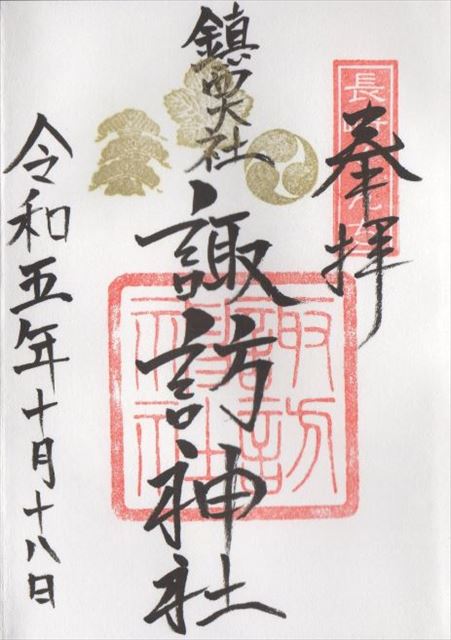 奉拝
鎮西大社
諏訪神社
諏訪
神社
令和五年十月十八日